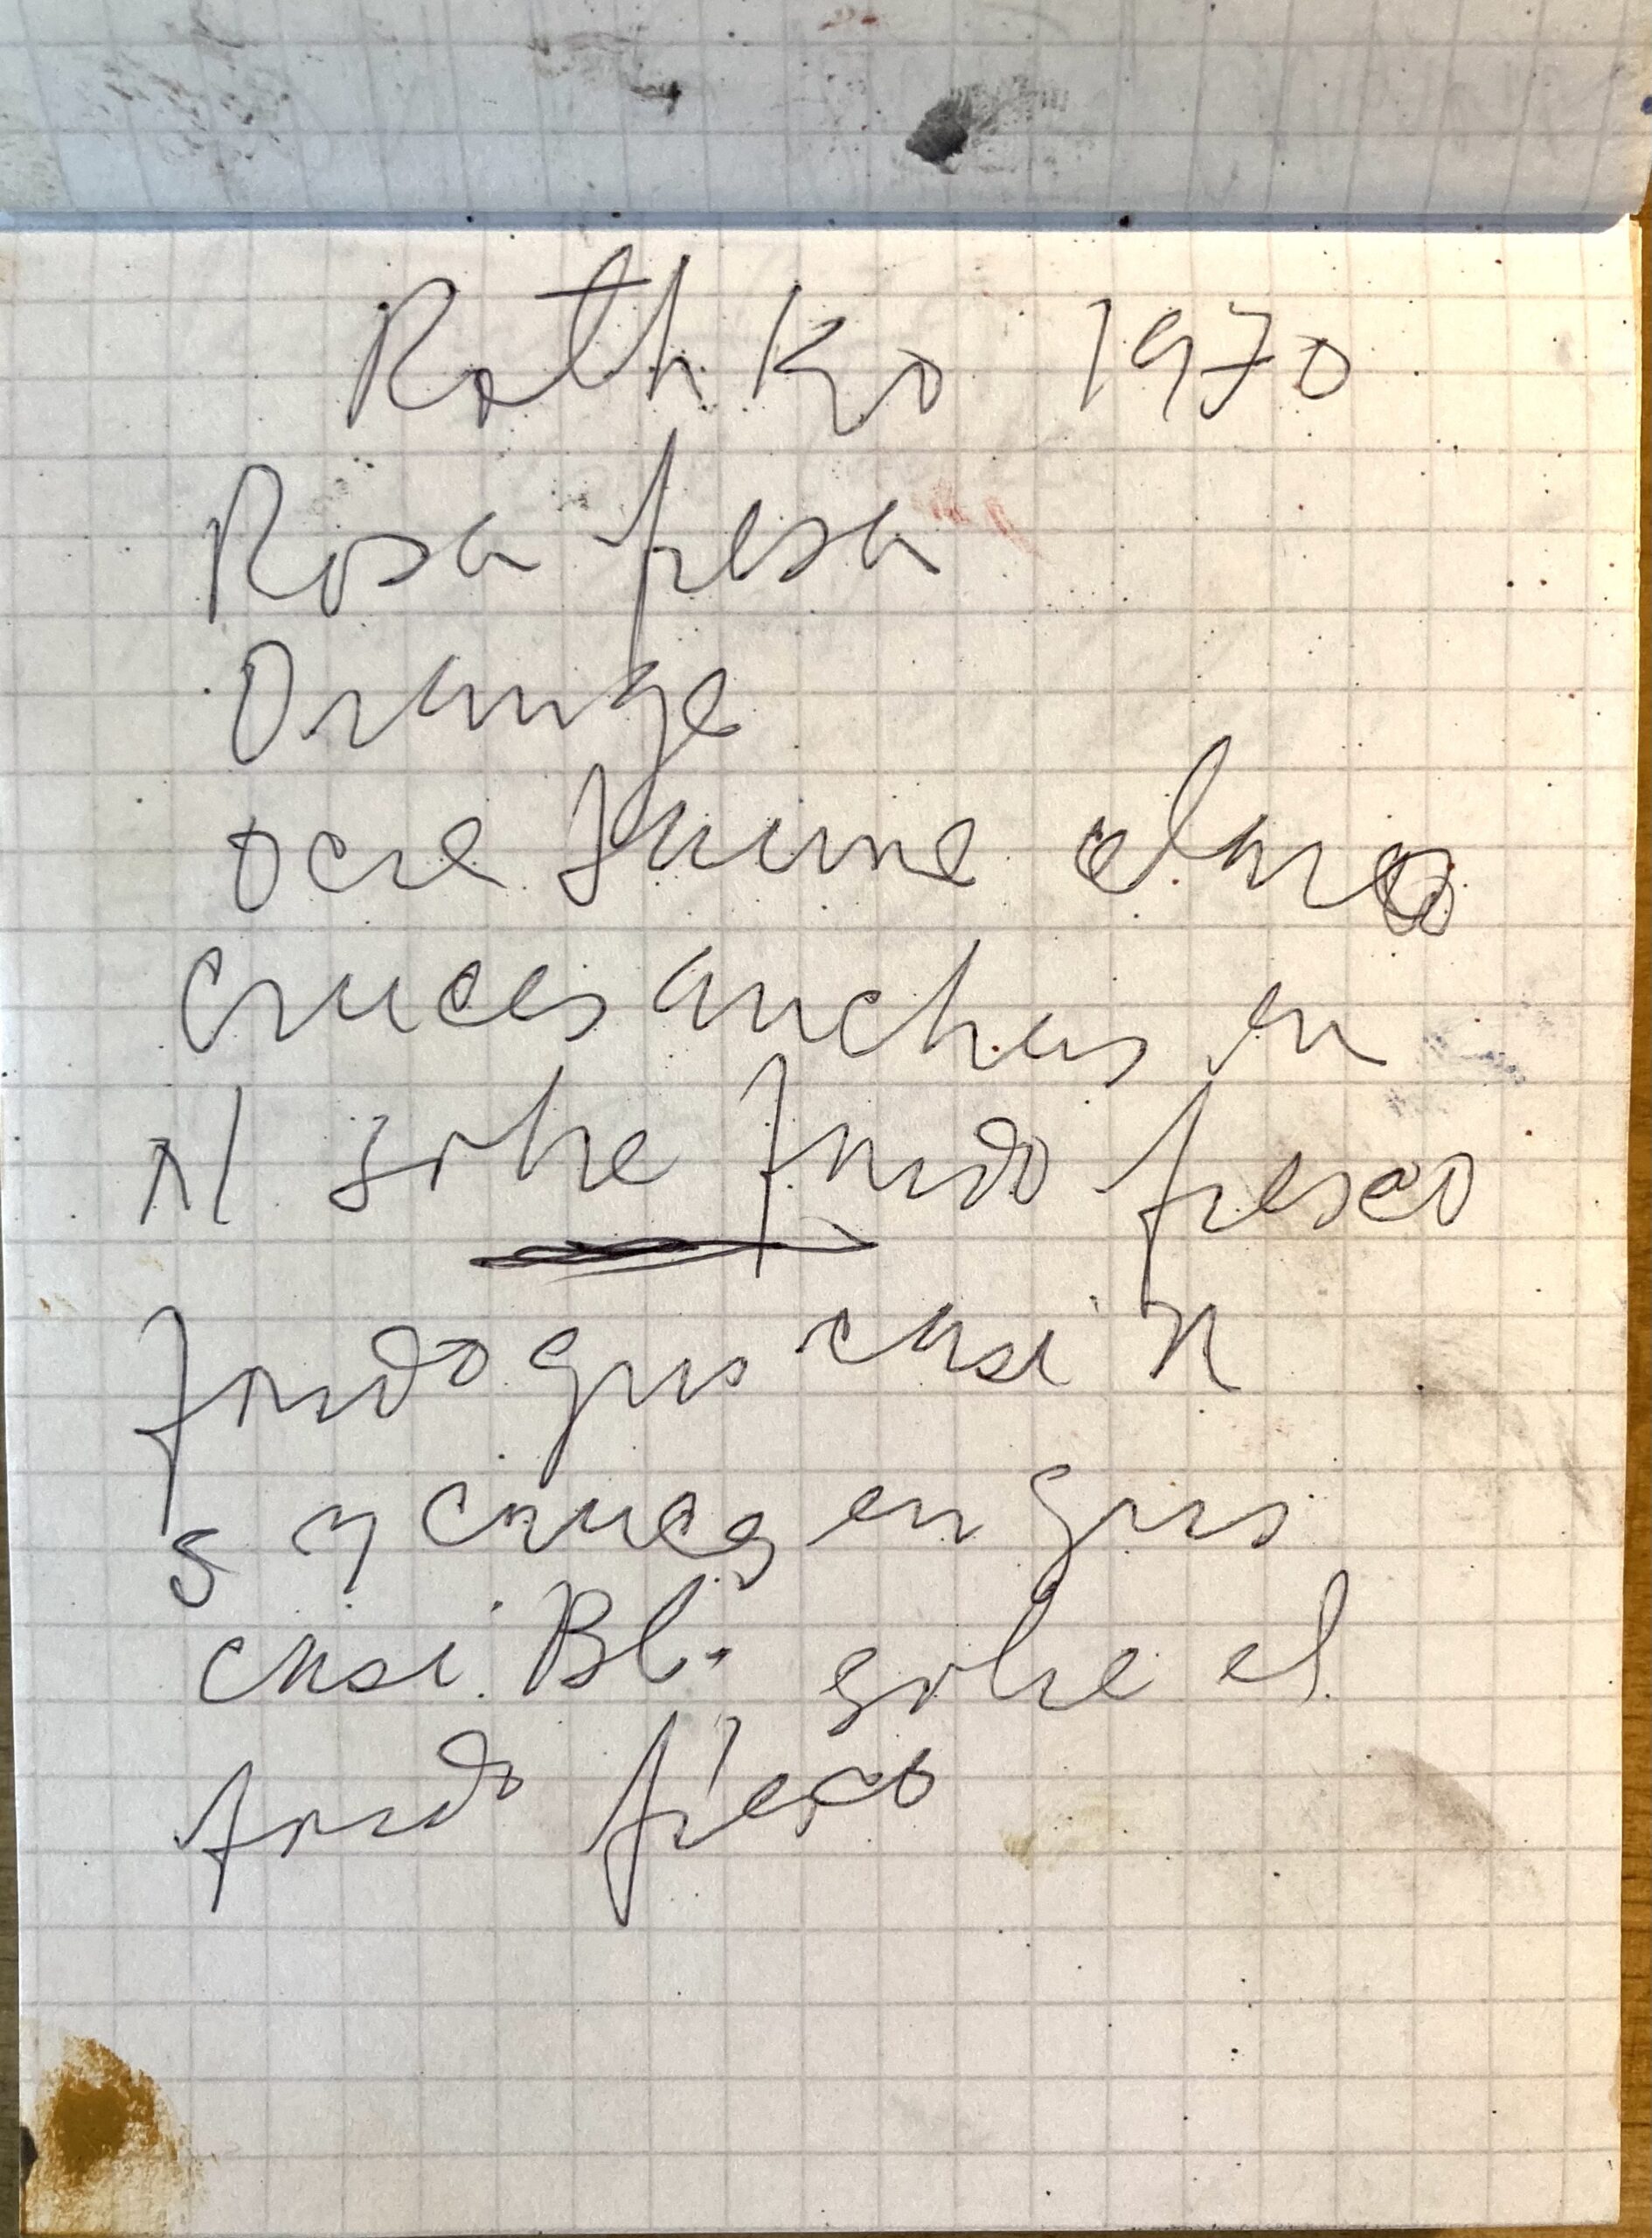 Rothko 1970
Rosa fresa
Orange
ocre Jaune claro
cruces anchas en
N sobre fondo fresco
fondo gris casi N
5 y cruces en gris
casi Bl. sobre el
fondo fresco